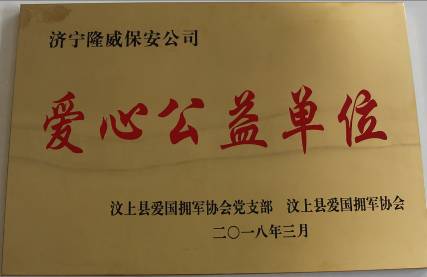 济宁隆威保安公司
爱心公益单位
汶上县爱国拥军协会党支部 汶上县爱国拥军协会
二〇一八年三月